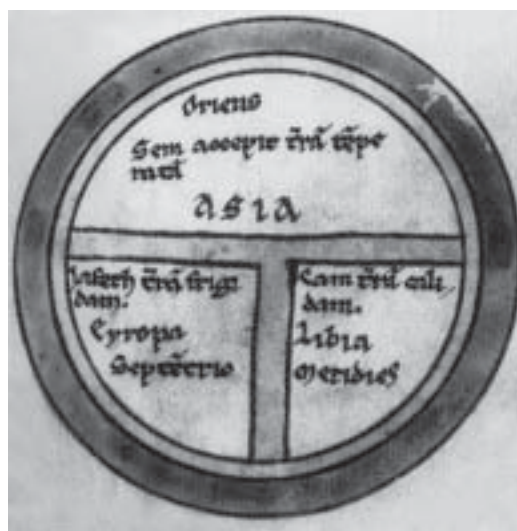 Oriens
Sem accepit t̄rā tēpe
ratā
ASIA
Iafeth t̄rā frigi
dam.
Eyropa
Septētrio
Cam t̄rā cali
dam.
Libia
Meridies